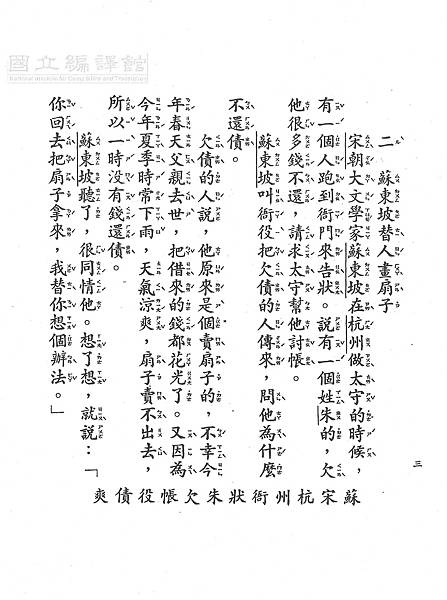 國立編譯館
National Institute for Compilation and Translation
二 蘇東坡替人畫扇子
宋朝大文學家蘇東坡在杭州做太守的時候，
有一個人跑到衙門來告狀。說有一個姓朱的，欠
他很多錢不還，請求太守幫他討帳。
蘇東坡叫衙役把欠債的人傳來，問他為什麼
不還債。
欠債的人說，他原來是個賣扇子的，不幸今
年春天父親去世，把借來的錢都花光了。又因為
今年夏季時常下雨，天氣涼爽，扇子賣不出去，
所以一時沒有錢還債。
蘇東坡聽了，很同情他。想了想，就說：「
你回去把扇子拿來，我替你想個辦法。」
三
蘇宋杭州衙狀朱欠帳役債爽